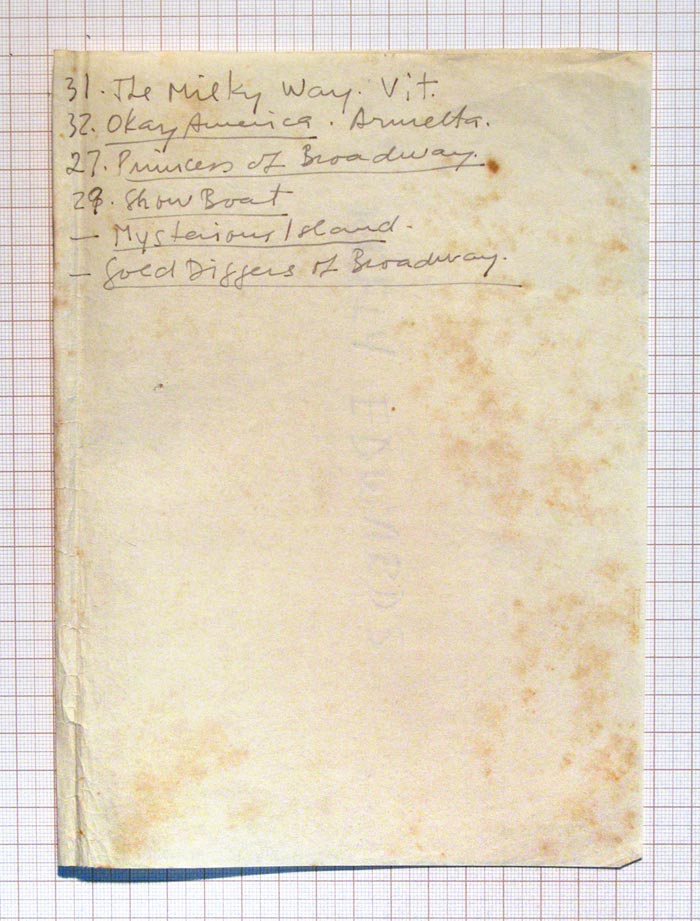 31. The Milky Way. Vit.
32. Okay America. Armetta.
27. Princess of Broadway.
29. Show Boat
— Mysterious Island.
— Gold Diggers of Broadway.
EDWARDS